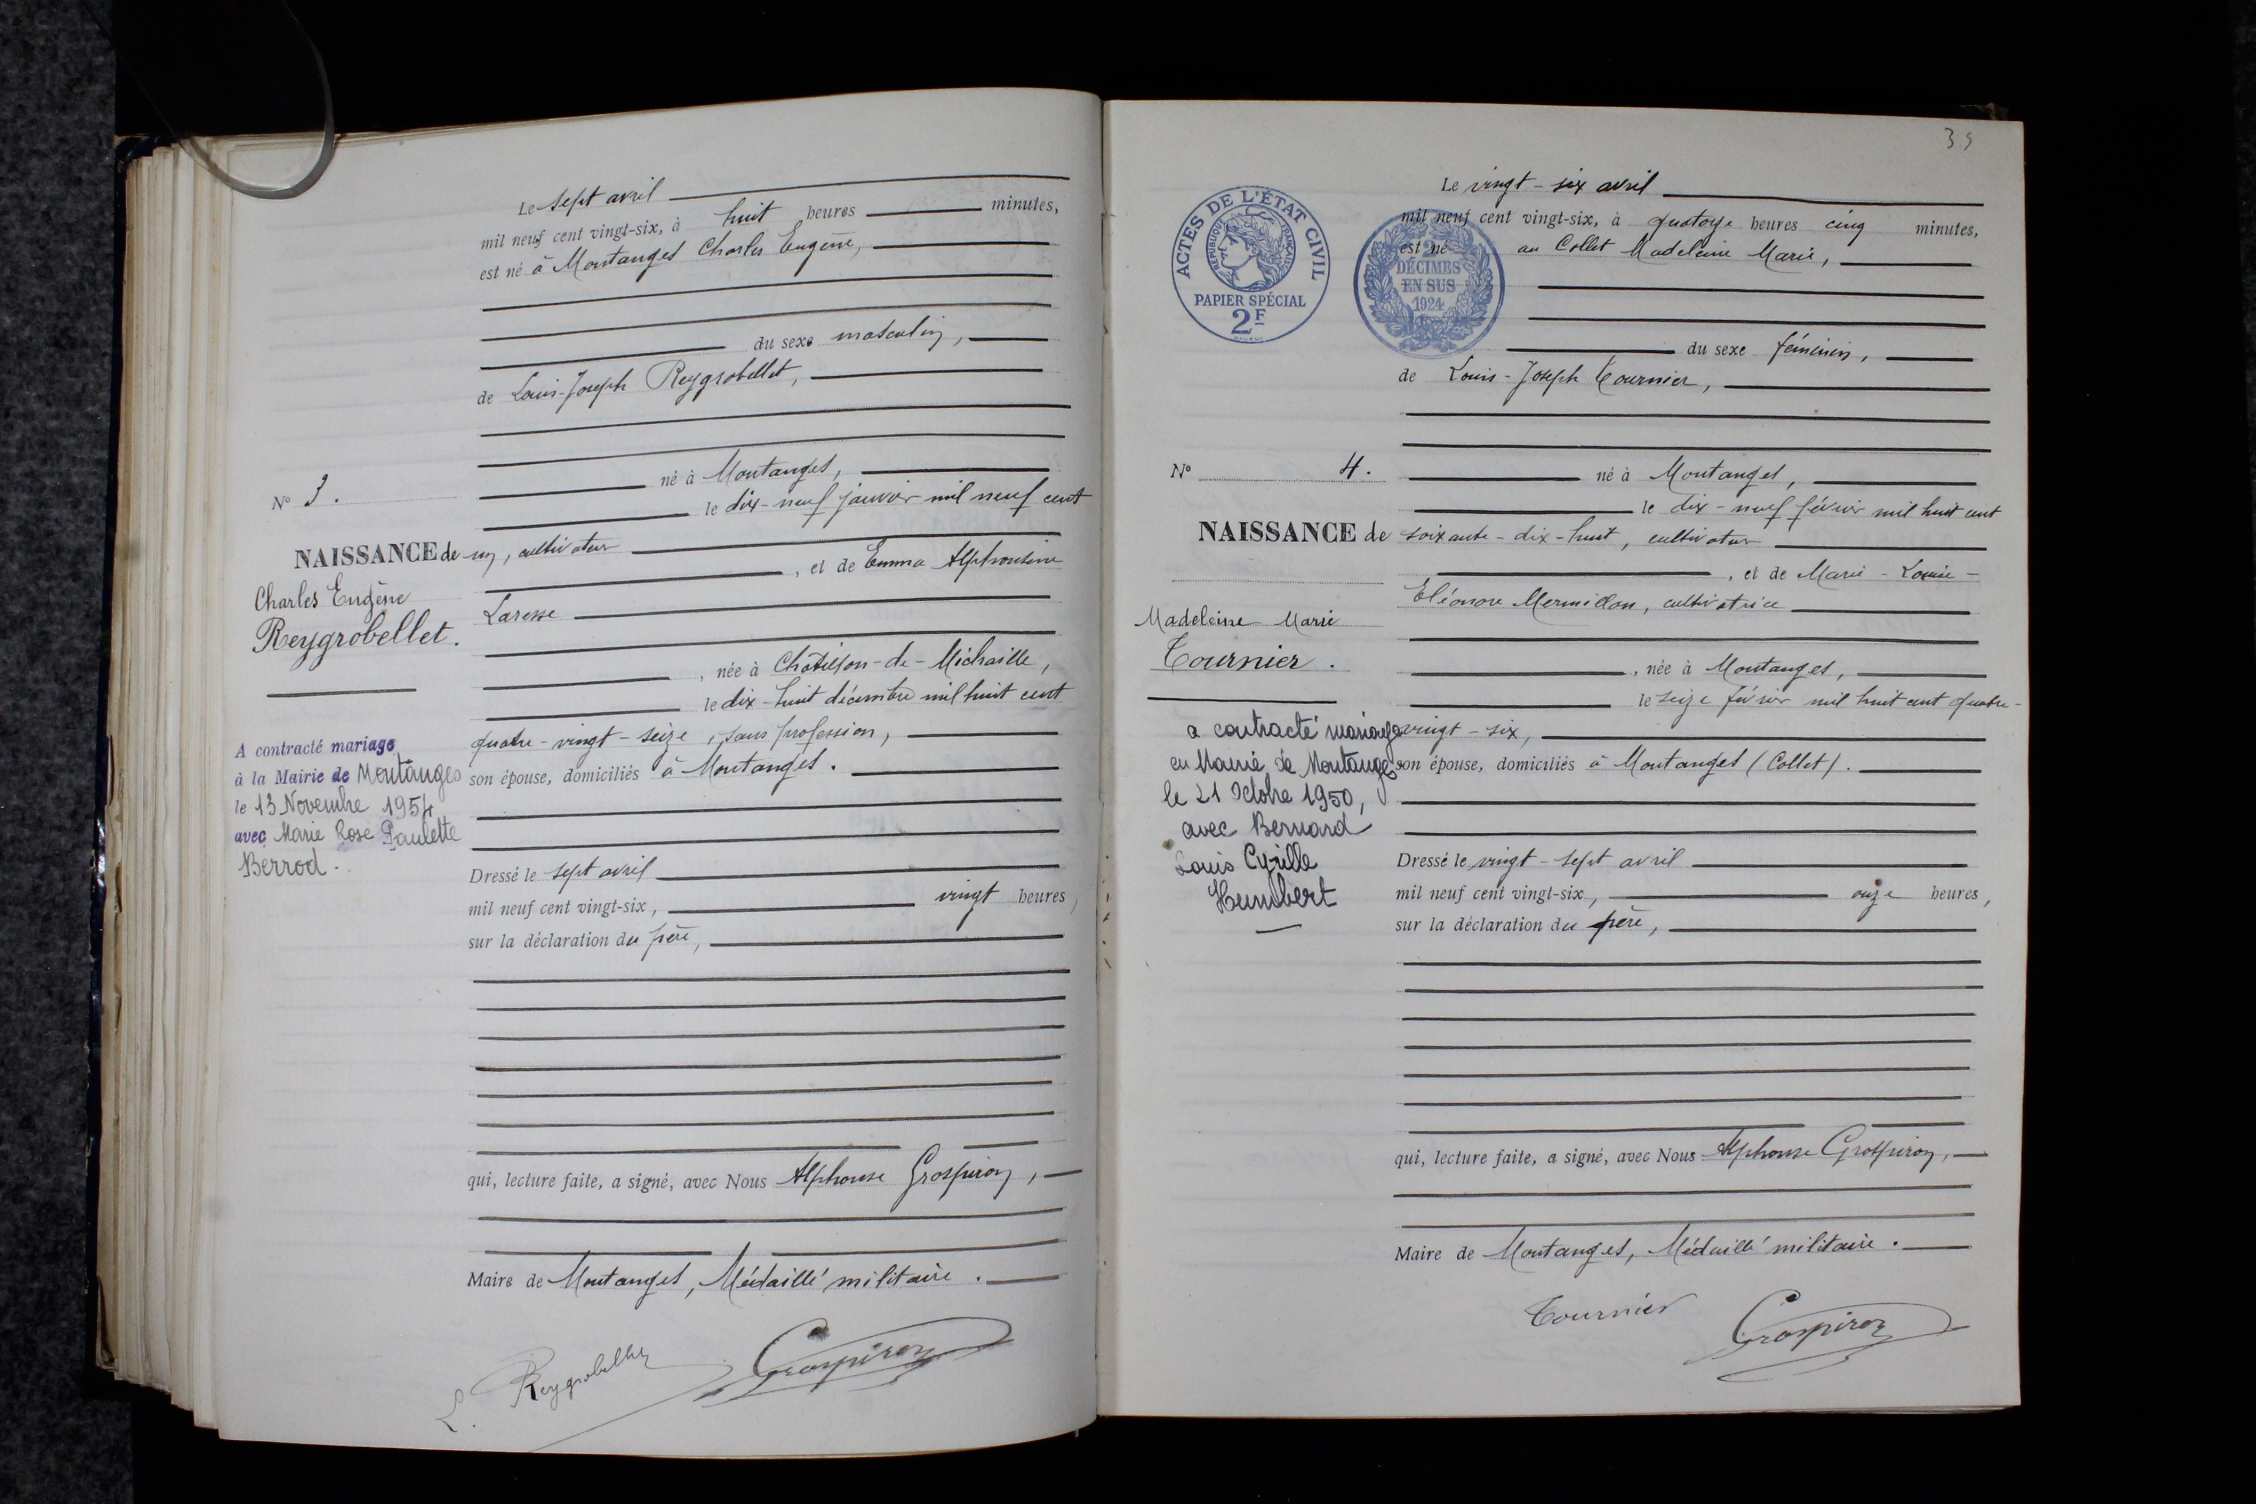 Le sept avril
mil neuf cent vingt-six, à huit heures minutes,
est né à Montanges Charles Eugène,
du sexe masculin,
de Louis-Joseph Reygrobellet,
né à Montanges,
le dix-neuf janvier mil neuf cent
un, cultivateur
, et de Emma Alphonsine
Laresse
, née à Châtillon-de-Michaille,
le dix-huit décembre mil huit cent
quatre-vingt-seize, sans profession,
son épouse, domiciliés à Montanges.
Dressé le sept avril
mil neuf cent vingt-six, vingt heures,
sur la déclaration du père,
qui, lecture faite, a signé, avec Nous Alphonse Grospiron,
Maire de Montanges, Médaillé militaire.
L. Reygrobellet
Grospiron
N° 3.
NAISSANCE de
Charles Eugène
Reygrobellet.
A contracté mariage
à la Mairie de Montanges
le 13 Novembre 1954
avec Marie Rose Paulette
Berrod.
35
ACTES DE L'ÉTAT CIVIL
RÉPUBLIQUE FRANÇAISE
PAPIER SPÉCIAL
2F
2
DÉCIMES
EN SUS
1924
Le vingt-six avril
mil neuf cent vingt-six, à quatorze heures cinq minutes,
est né au Collet Madeleine Marie,
du sexe féminin,
de Louis-Joseph Tournier,
né à Montanges,
le dix-neuf février mil huit cent
soixante-dix-huit, cultivateur
, et de Marie-Louise-
Eléonore Mermillon, cultivatrice
, née à Montanges,
le seize février mil huit cent quatre-
vingt-six,
son épouse, domiciliés à Montanges (Collet).
Dressé le vingt-sept avril
mil neuf cent vingt-six, onze heures,
sur la déclaration du père,
qui, lecture faite, a signé, avec Nous Alphonse Grospiron,
Maire de Montanges, Médaillé militaire.
Tournier
Grospiron
N° 4.
NAISSANCE de
Madeleine Marie
Tournier.
a contracté mariage
en Mairie de Montanges
le 21 Octobre 1950,
avec Bernard
Louis Cyrille
Humbert